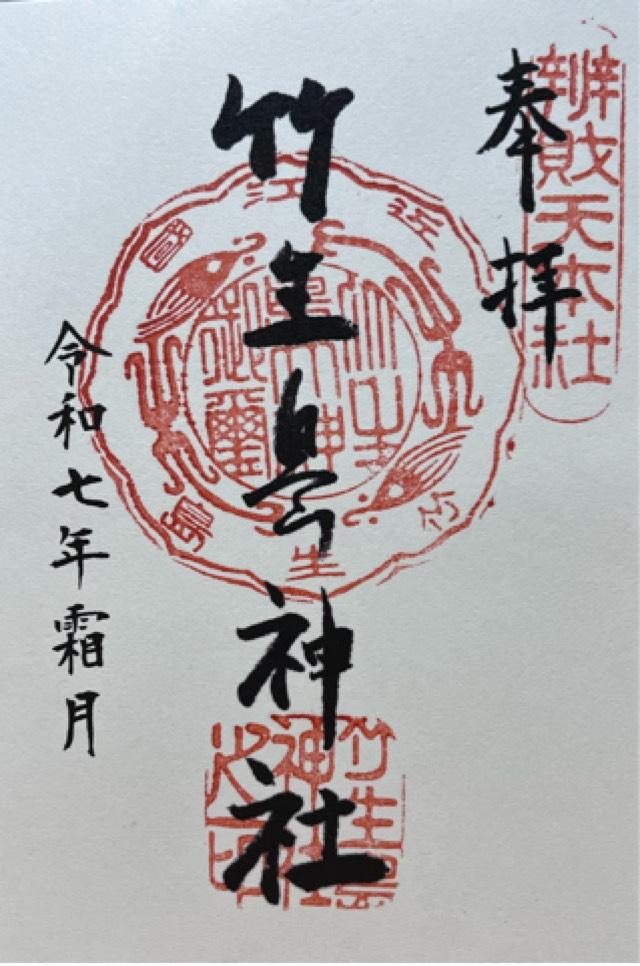 奉拝
辨財天本社
竹生島神社
近江國
竹生島
竹生島神社之印
令和七年霜月